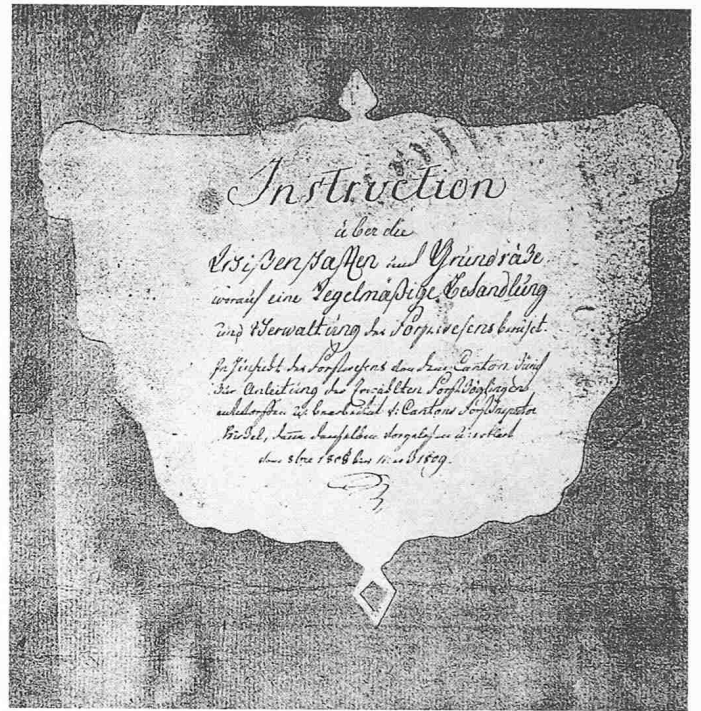 Instruction
über die
Wißenschaften und Grundsäze
worauf eine Regelmäßige Behandlung
und Verwaltung des Forstwesens beruhet.
In Hinsicht des Forstwesens von dem Canton Zürich
Zur Anleitung der Erwählten Forst Zöglingen
und bearbeitet v: Cantons Forst Inspector
Hirzel, denselben vorgelesen
vom 8bre 1808 bis 1809.